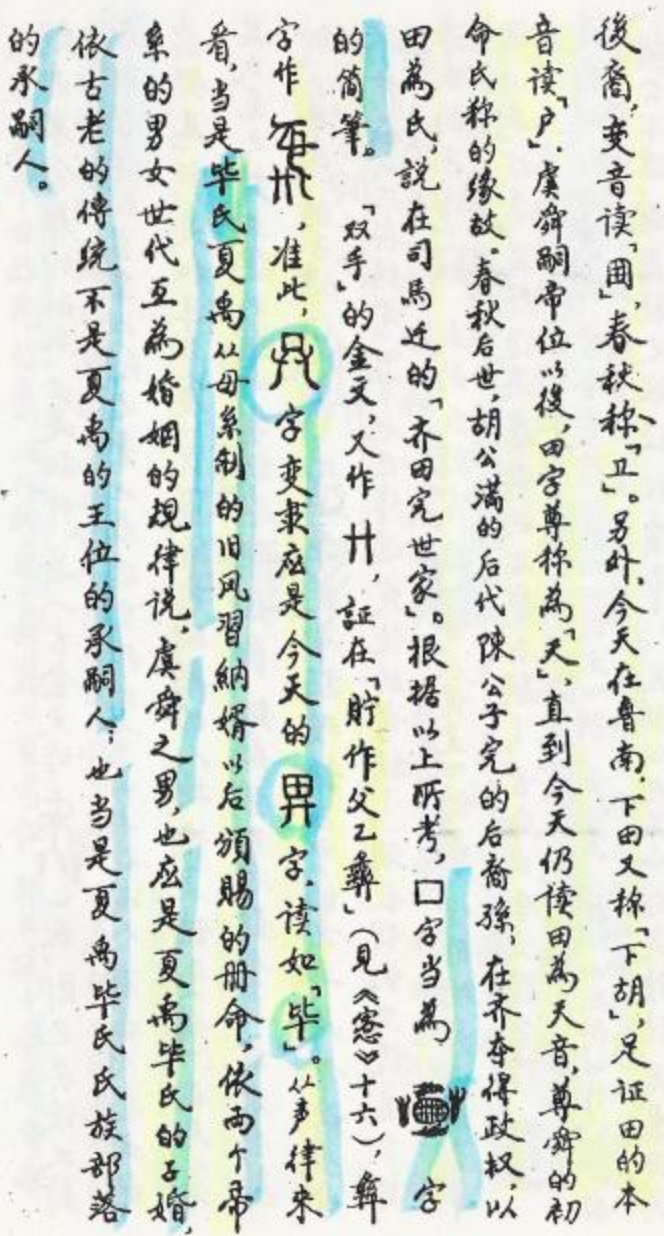 後裔,变音读「围」,春秋称「卫」。另外,今天在鲁南,下田又称「下胡」,足证田的本
音读「户」.虞舜嗣帝位以後,田字尊称為「天」,直到今天仍读田為天音,尊舜的初
命氏称的缘故。春秋后世,胡公满的后代陳公子完的后裔孫,在齐夺得政权,以
田為氏,説在司馬迁的「齐田完世家」。根据以上所考,口字当為 字
的简筆。「双手」的金文,又作廾,証在「貯作父乙彝」(見《愙》十六),彝
字作 ,准此, 字变隶应是今天的畀字.读如「毕」。从声律来
看,当是毕氏夏禹从母系制的旧风習納婿以后頒賜的册命,依两个帝
系的男女世代互為婚姻的規律说,虞舜之男,也应是夏禹毕氏的子婿,
依古老的傳統不是夏禹的王位的承嗣人;也当是夏禹毕氏氏族部落
的承嗣人。